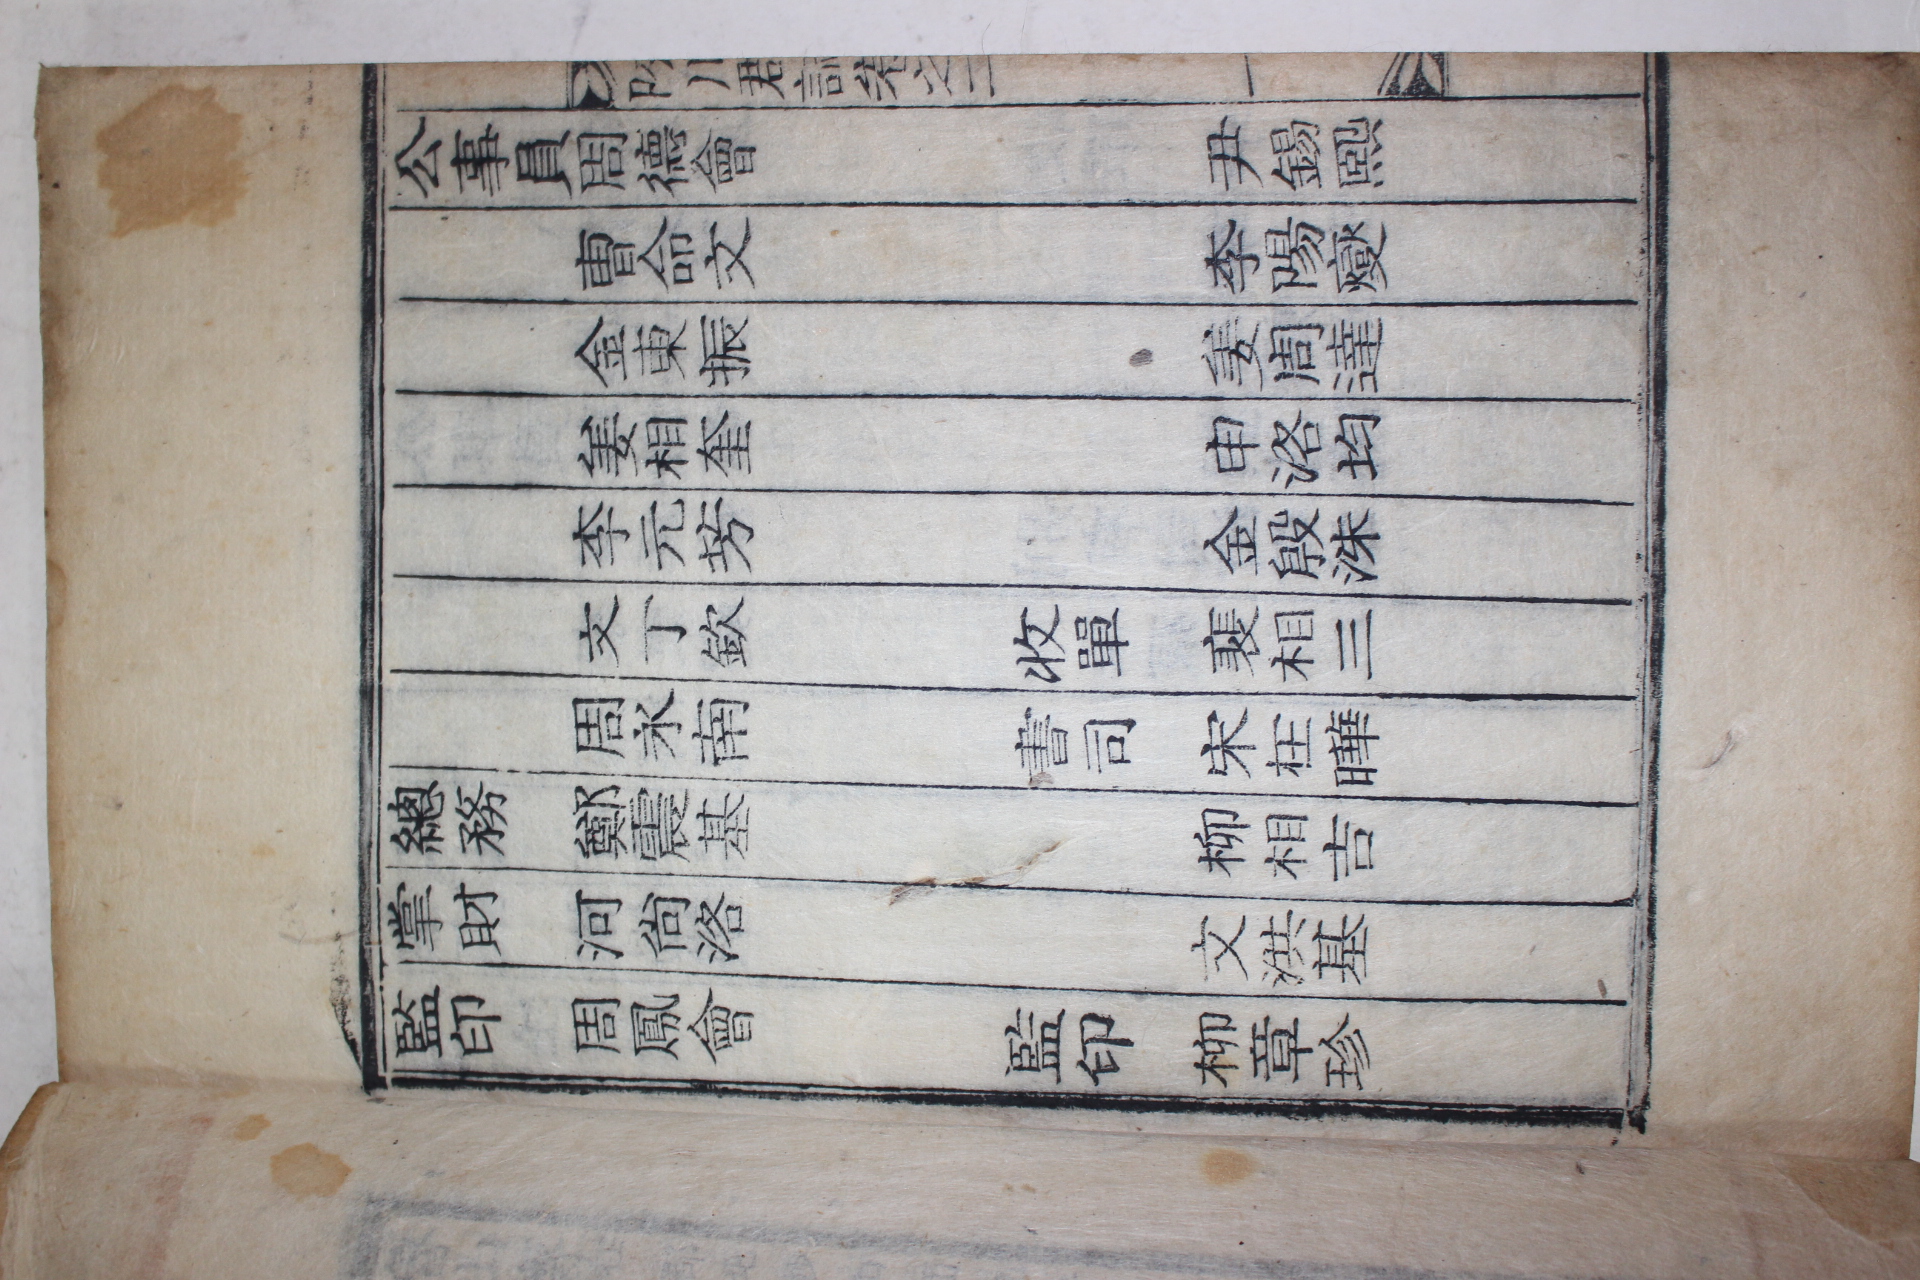 公事員周德會 尹錫熙
曺命文 李陽燮
金東振 姜周達
姜相奎 申洛均
李元芳 金殷洙
文丁欽 收單 裵相三
周永南 書司 宋在曄
總務 鄭震基 柳相吉
掌財 河尙洛 文洪基
監印 周鳳會 監印 柳章珍